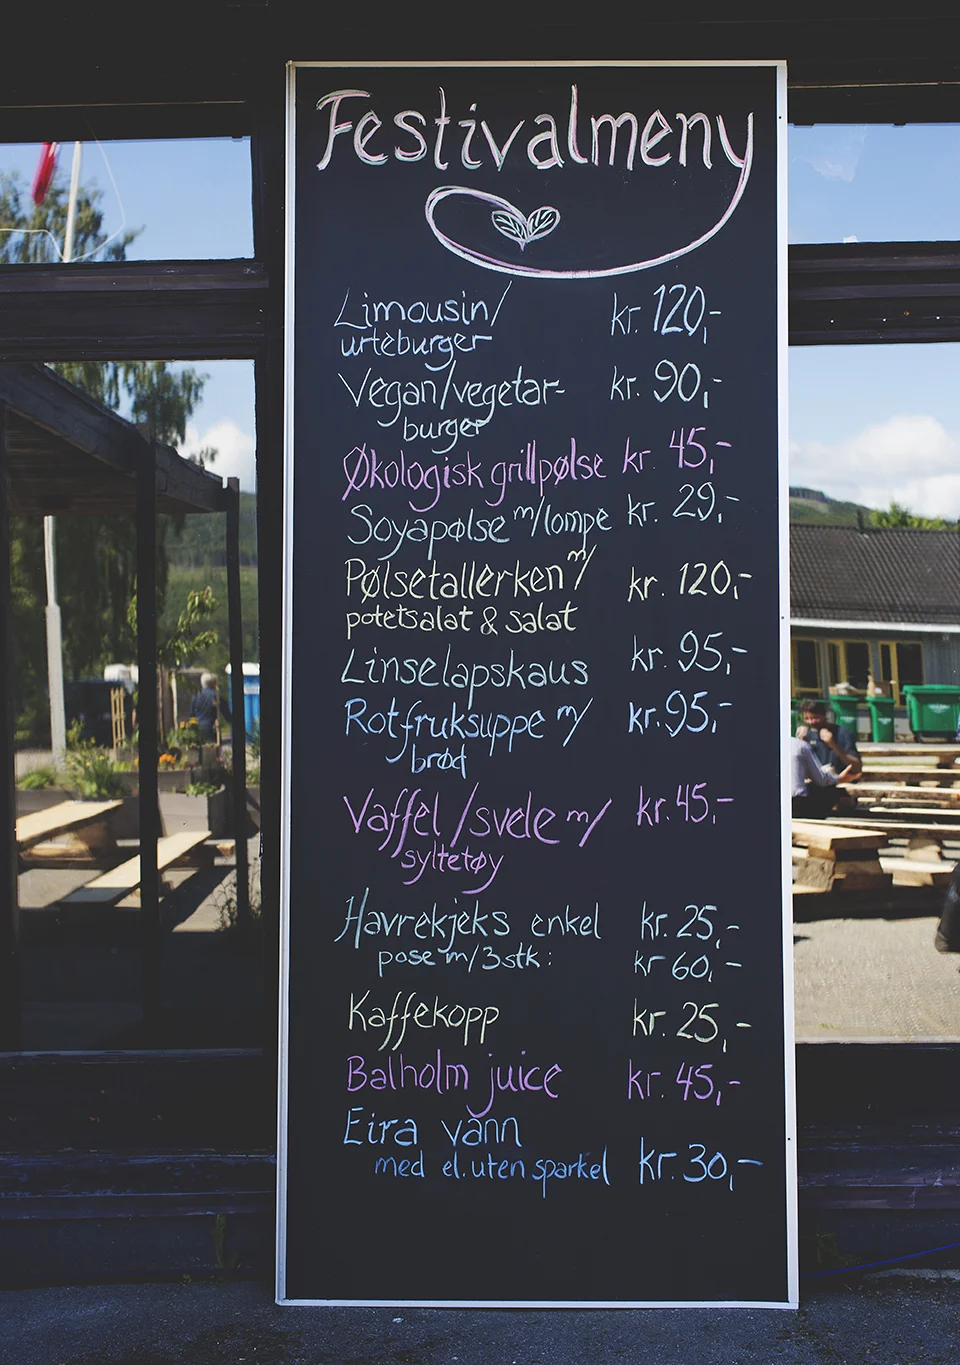 Festivalmeny
Limousin/ kr. 120,-
urteburger
Vegan/vegetar- kr. 90,-
burger
Økologisk grillpølse kr. 45,-
Soyapølse m/lompe kr. 29,-
Pølsetallerken m/ kr. 120,-
potetsalat & salat
Linselapskaus kr. 95,-
Rotfruksuppe m/ kr. 95,-
brød
Vaffel /svele m/ kr. 45,-
syltetøy
Havrekjeks enkel kr. 25,-
pose m/3stk: kr 60,-
Kaffekopp kr. 25,-
Balholm juice kr. 45,-
Eira vann
med el. uten sparkel kr. 30,-